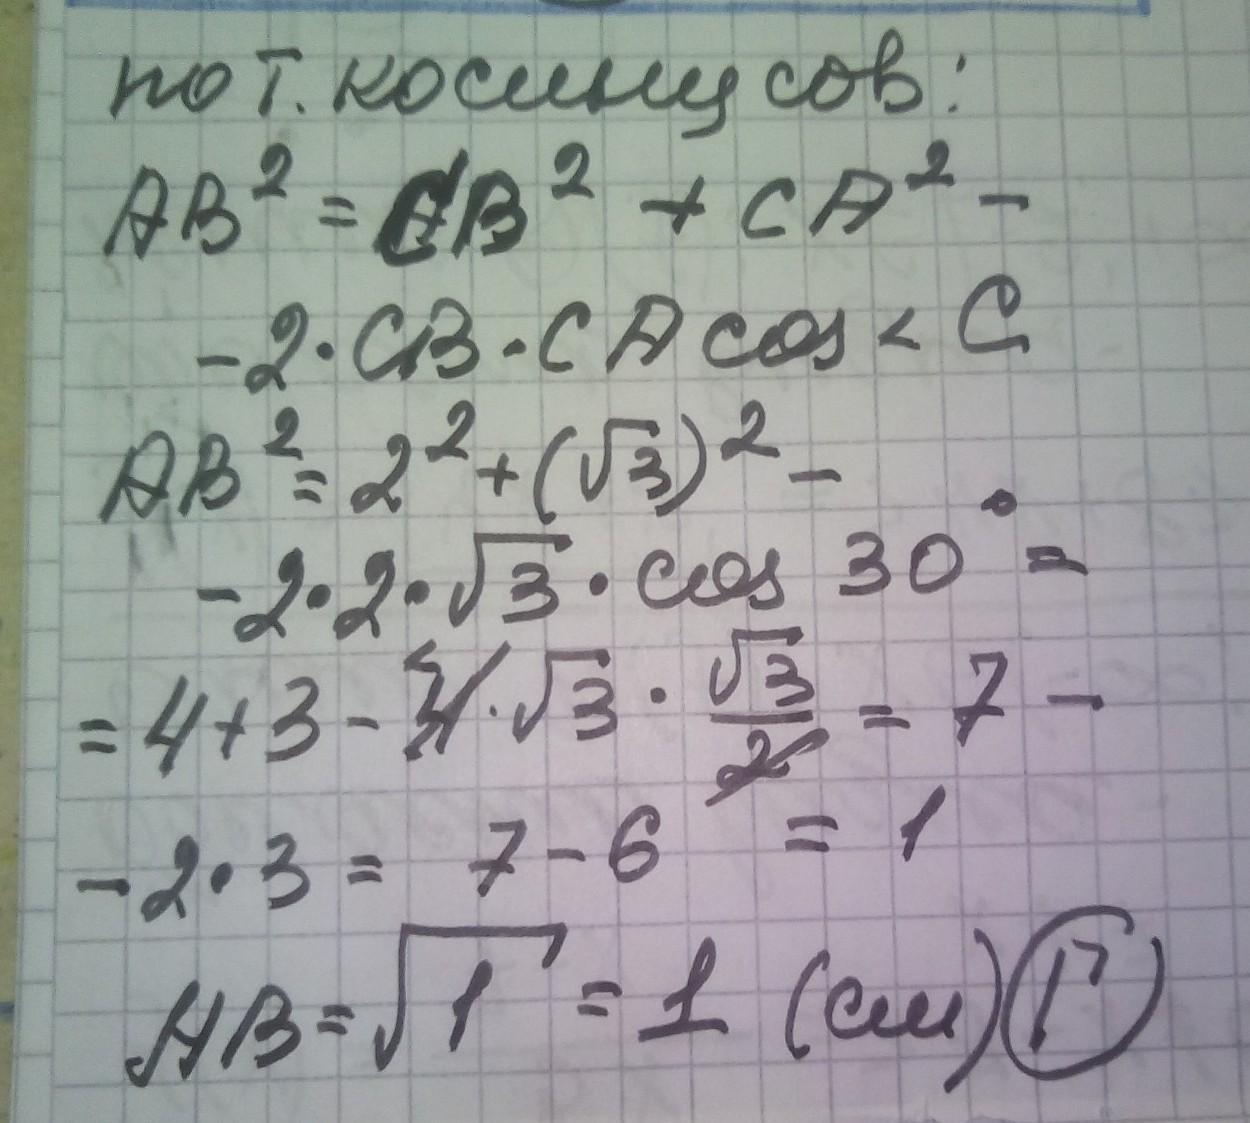 по т. косинусов:
AB² = CB² + CA² -
- 2 · CB · CA cos < C
AB² = 2² + (√3)² -
- 2 · 2 · √3 · cos 30° =
= 4 + 3 - 4 · √3 · √3/2 = 7 -
- 2 · 3 = 7 - 6 = 1
AB = √1 = 1 (см) Г